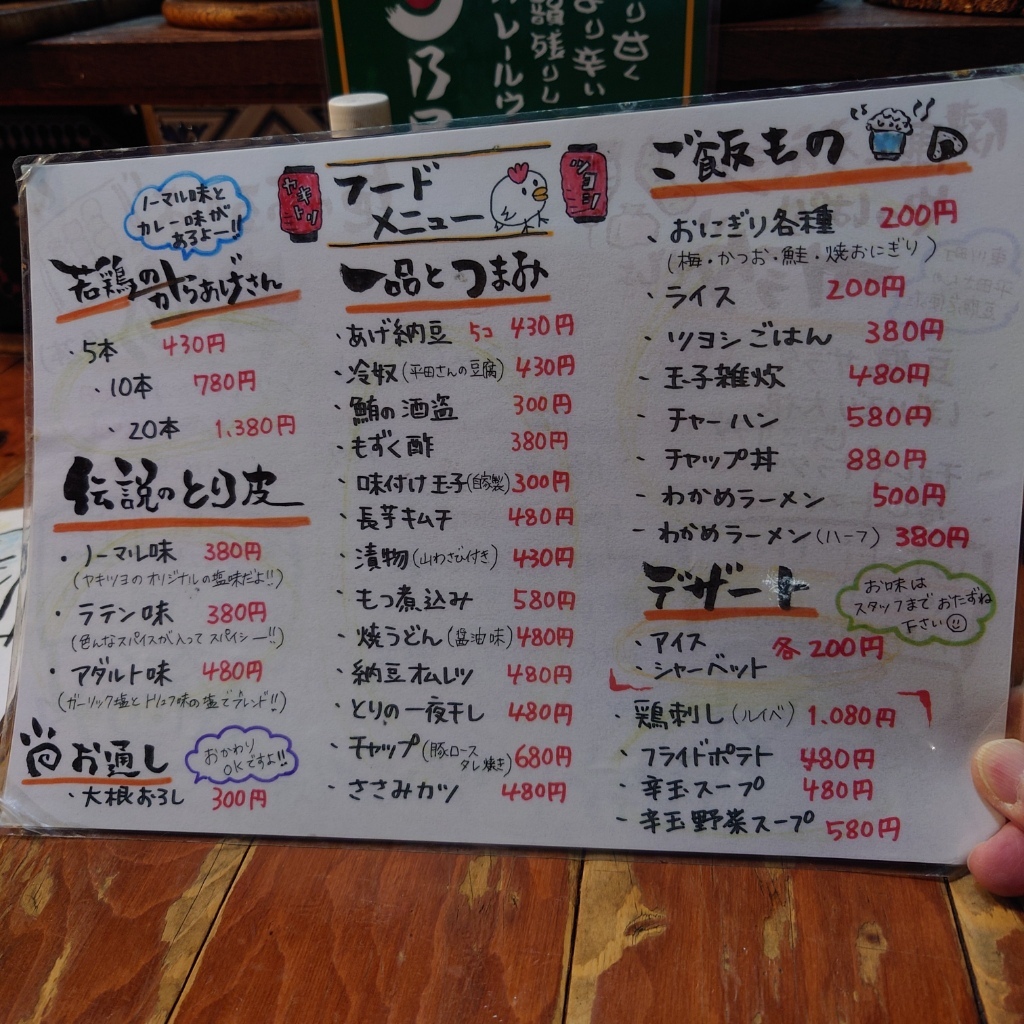 り甘く
より辛い
韻残りし
カレールウ
ヤキトリ
フード
メニュー
ツヨシ
ノーマル味と
カレー味が
あるよー!!
若鶏の
からあげさん
・5本 430円
・10本 780円
・20本 1,380円
伝説のとり皮
・ノーマル味 380円
(ヤキツヨのオリジナルの塩味だよ!!)
・ラテン味 380円
(色んなスパイスが入ってスパイシー!!)
・アダルト味 480円
(ガーリック塩とトリュフ味の塩でブレンド!!)
お通し
おかわり
OKですよ!!
・大根おろし 300円
一品とつまみ
・あげ納豆 5コ 430円
・冷奴(平田さんの豆腐) 430円
・鮪の酒盗 300円
・もずく酢 380円
・味付け玉子(自家製) 300円
・長芋キムチ 480円
・漬物(山わさび付き) 430円
・もつ煮込み 580円
・焼うどん(醤油味) 480円
・納豆オムレツ 480円
・とりの一夜干し 480円
・チャップ(豚ロースタレ焼き) 680円
・ささみカツ 480円
ご飯もの
・おにぎり各種 200円
(梅・かつお・鮭・焼おにぎり)
・ライス 200円
・ツヨシごはん 380円
・玉子雑炊 480円
・チャーハン 580円
・チャップ丼 880円
・わかめラーメン 500円
・わかめラーメン(ハーフ) 380円
デザート
お味は
スタッフまでおたずね
下さい
・アイス
・シャーベット 各200円
・鶏刺し(ルイベ) 1,080円
・フライドポテト 480円
・辛玉スープ 480円
・辛玉野菜スープ 580円